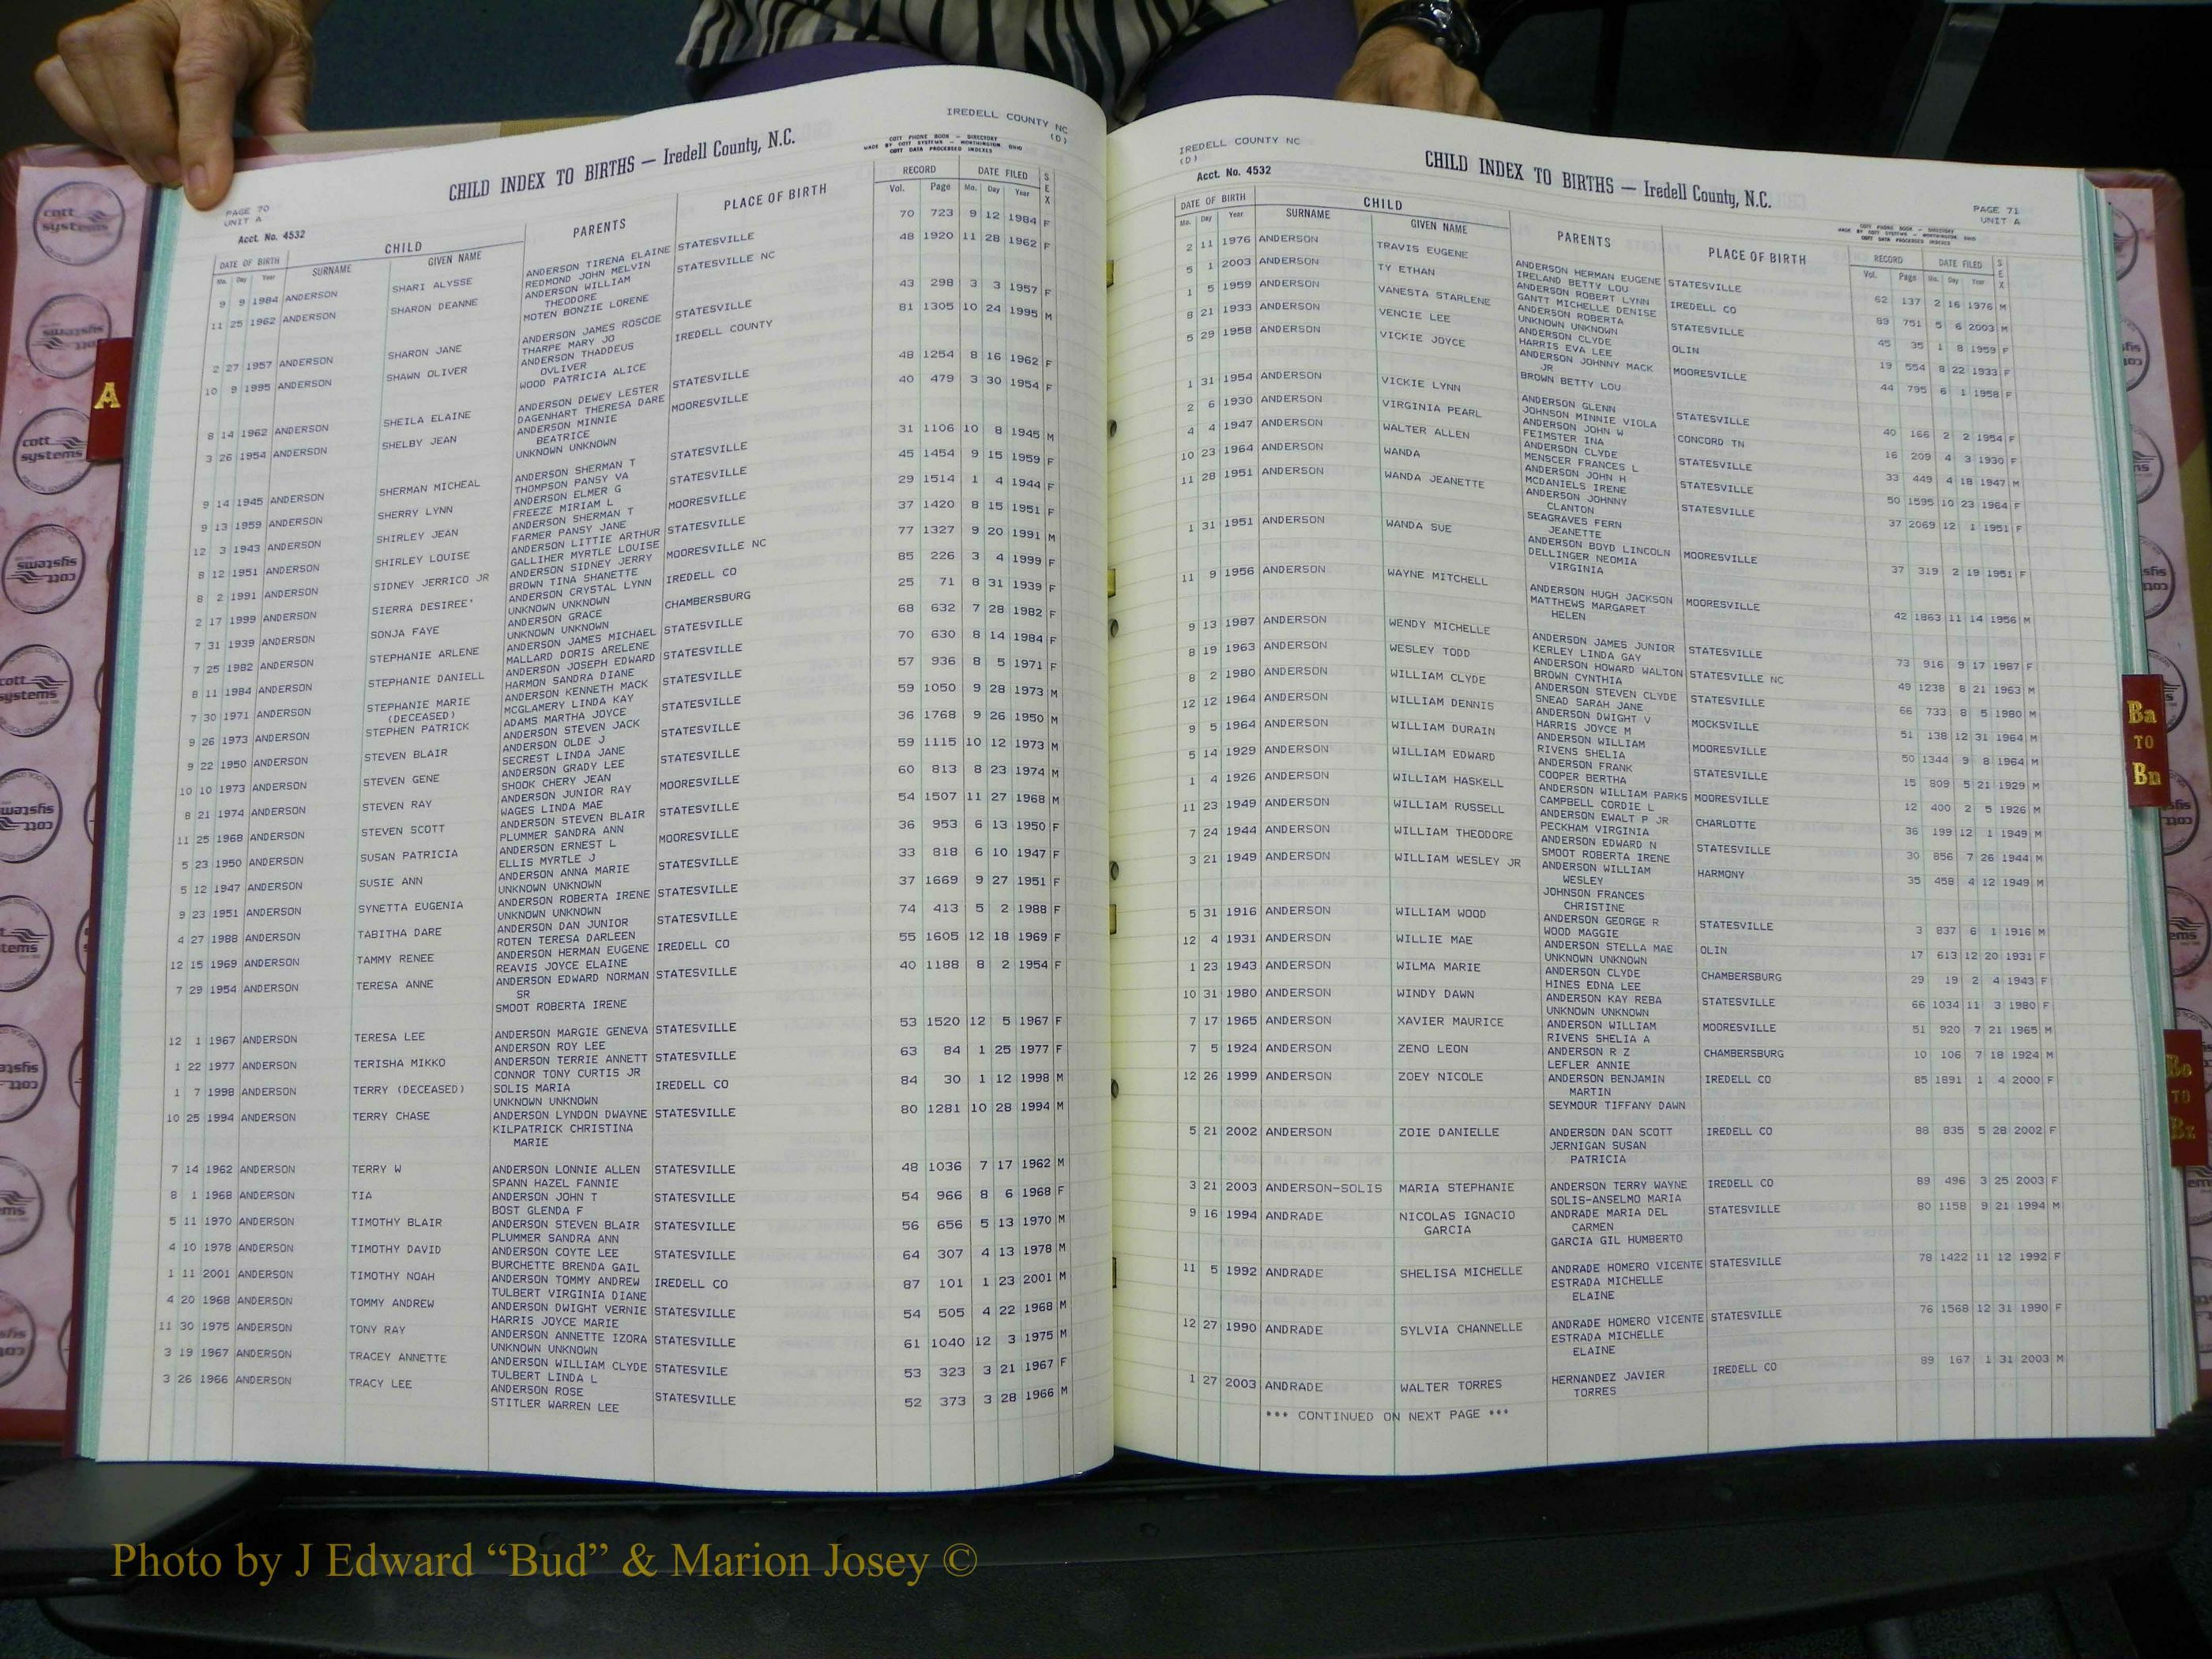 IREDELL COUNTY NC
(D)
CHILD INDEX TO BIRTHS — Iredell County, N.C.
COTT PHONE BOOK — DIRECTORY
MADE BY COTT SYSTEMS — WORTHINGTON OHIO
COTT DATA PROCESSED INDEXES
PAGE 70
UNIT A
Acct. No. 4532
DATE OF BIRTH CHILD PARENTS PLACE OF BIRTH RECORD DATE FILED SEX
Mo. Day Year SURNAME GIVEN NAME Vol. Page Mo. Day Year
9 9 1984 ANDERSON SHARI ALYSSE ANDERSON TIRENA ELAINE STATESVILLE 70 723 9 12 1984 F
REDMOND JOHN MELVIN
11 25 1962 ANDERSON SHARON DEANNE ANDERSON WILLIAM STATESVILLE NC 48 1920 11 28 1962 F
THEODORE
MOTEN BONZIE LORENE
2 27 1957 ANDERSON SHARON JANE ANDERSON JAMES ROSCOE STATESVILLE 43 298 3 3 1957 F
THARPE MARY JO
10 9 1995 ANDERSON SHAWN OLIVER ANDERSON THADDEUS IREDELL COUNTY 81 1305 10 24 1995 M
OVLIVER
WOOD PATRICIA ALICE
8 14 1962 ANDERSON SHEILA ELAINE ANDERSON DEWEY LESTER STATESVILLE 48 1254 8 16 1962 F
DAGENHART THERESA DARE
3 26 1954 ANDERSON SHELBY JEAN ANDERSON MINNIE MOORESVILLE 40 479 3 30 1954 F
BEATRICE
UNKNOWN UNKNOWN
9 14 1945 ANDERSON SHERMAN MICHEAL ANDERSON SHERMAN T STATESVILLE 31 1106 10 8 1945 M
THOMPSON PANSY VA
9 13 1959 ANDERSON SHERRY LYNN ANDERSON ELMER G STATESVILLE 45 1454 9 15 1959 F
FREEZE MIRIAM L
12 3 1943 ANDERSON SHIRLEY JEAN ANDERSON SHERMAN T MOORESVILLE 29 1514 1 4 1944 F
FARMER PANSY JANE
8 12 1951 ANDERSON SHIRLEY LOUISE ANDERSON LITTIE ARTHUR STATESVILLE 37 1420 8 15 1951 F
GALLIHER MYRTLE LOUISE
8 2 1991 ANDERSON SIDNEY JERRICO JR ANDERSON SIDNEY JERRY MOORESVILLE NC 77 1327 9 20 1991 M
BROWN TINA SHANETTE
2 17 1999 ANDERSON SIERRA DESIREE' ANDERSON CRYSTAL LYNN IREDELL CO 85 226 3 4 1999 F
UNKNOWN UNKNOWN
7 31 1939 ANDERSON SONJA FAYE ANDERSON GRACE CHAMBERSBURG 25 71 8 31 1939 F
UNKNOWN UNKNOWN
7 25 1982 ANDERSON STEPHANIE ARLENE ANDERSON JAMES MICHAEL STATESVILLE 68 632 7 28 1982 F
MALLARD DORIS ARELENE
8 11 1984 ANDERSON STEPHANIE DANIELL ANDERSON JOSEPH EDWARD STATESVILLE 70 630 8 14 1984 F
HARMON SANDRA DIANE
7 30 1971 ANDERSON STEPHANIE MARIE ANDERSON KENNETH MACK STATESVILLE 57 936 8 5 1971 F
(DECEASED) MCGLAMERY LINDA KAY
9 26 1973 ANDERSON STEPHEN PATRICK ADAMS MARTHA JOYCE STATESVILLE 59 1050 9 28 1973 M
ANDERSON STEVEN JACK
9 22 1950 ANDERSON STEVEN BLAIR ANDERSON OLDE J STATESVILLE 36 1768 9 26 1950 M
SECREST LINDA JANE
10 10 1973 ANDERSON STEVEN GENE ANDERSON GRADY LEE STATESVILLE 59 1115 10 12 1973 M
SHOOK CHERY JEAN
8 21 1974 ANDERSON STEVEN RAY ANDERSON JUNIOR RAY MOORESVILLE 60 813 8 23 1974 M
WAGES LINDA MAE
11 25 1968 ANDERSON STEVEN SCOTT ANDERSON STEVEN BLAIR STATESVILLE 54 1507 11 27 1968 M
PLUMMER SANDRA ANN
5 23 1950 ANDERSON SUSAN PATRICIA ANDERSON ERNEST L MOORESVILLE 36 953 6 13 1950 F
ELLIS MYRTLE J
5 12 1947 ANDERSON SUSIE ANN ANDERSON ANNA MARIE STATESVILLE 33 818 6 10 1947 F
UNKNOWN UNKNOWN
9 23 1951 ANDERSON SYNETTA EUGENIA ANDERSON ROBERTA IRENE STATESVILLE 37 1669 9 27 1951 F
UNKNOWN UNKNOWN
4 27 1988 ANDERSON TABITHA DARE ANDERSON DAN JUNIOR STATESVILLE 74 413 5 2 1988 F
ROTEN TERESA DARLEEN
12 15 1969 ANDERSON TAMMY RENEE ANDERSON HERMAN EUGENE IREDELL CO 55 1605 12 18 1969 F
REAVIS JOYCE ELAINE
7 29 1954 ANDERSON TERESA ANNE ANDERSON EDWARD NORMAN STATESVILLE 40 1188 8 2 1954 F
SR
SMOOT ROBERTA IRENE
12 1 1967 ANDERSON TERESA LEE ANDERSON MARGIE GENEVA STATESVILLE 53 1520 12 5 1967 F
ANDERSON ROY LEE
1 22 1977 ANDERSON TERISHA MIKKO ANDERSON TERRIE ANNETT STATESVILLE 63 84 1 25 1977 F
CONNOR TONY CURTIS JR
1 7 1998 ANDERSON TERRY (DECEASED) SOLIS MARIA IREDELL CO 84 30 1 12 1998 M
UNKNOWN UNKNOWN
10 25 1994 ANDERSON TERRY CHASE ANDERSON LYNDON DWAYNE STATESVILLE 80 1281 10 28 1994 M
KILPATRICK CHRISTINA
MARIE
7 14 1962 ANDERSON TERRY W ANDERSON LONNIE ALLEN STATESVILLE 48 1036 7 17 1962 M
SPANN HAZEL FANNIE
8 1 1968 ANDERSON TIA ANDERSON JOHN T STATESVILLE 54 966 8 6 1968 F
BOST GLENDA F
5 11 1970 ANDERSON TIMOTHY BLAIR ANDERSON STEVEN BLAIR STATESVILLE 56 656 5 13 1970 M
PLUMMER SANDRA ANN
4 10 1978 ANDERSON TIMOTHY DAVID ANDERSON COYTE LEE STATESVILLE 64 307 4 13 1978 M
BURCHETTE BRENDA GAIL
1 11 2001 ANDERSON TIMOTHY NOAH ANDERSON TOMMY ANDREW IREDELL CO 87 101 1 23 2001 M
TULBERT VIRGINIA DIANE
4 20 1968 ANDERSON TOMMY ANDREW ANDERSON DWIGHT VERNIE STATESVILLE 54 505 4 22 1968 M
HARRIS JOYCE MARIE
11 30 1975 ANDERSON TONY RAY ANDERSON ANNETTE IZORA STATESVILLE 61 1040 12 3 1975 M
UNKNOWN UNKNOWN
3 19 1967 ANDERSON TRACEY ANNETTE ANDERSON WILLIAM CLYDE STATESVILE 53 323 3 21 1967 F
TULBERT LINDA L
3 26 1966 ANDERSON TRACY LEE ANDERSON ROSE STATESVILLE 52 373 3 28 1966 M
STITLER WARREN LEE
IREDELL COUNTY NC
(D)
Acct. No. 4532
CHILD INDEX TO BIRTHS — Iredell County, N.C.
PAGE 71
UNIT A
COTT PHONE BOOK — DIRECTORY
MADE BY COTT SYSTEMS — WORTHINGTON OHIO
COTT DATA PROCESSED INDEXES
DATE OF BIRTH CHILD PARENTS PLACE OF BIRTH RECORD DATE FILED SEX
Mo. Day Year SURNAME GIVEN NAME Vol. Page Mo. Day Year
2 11 1976 ANDERSON TRAVIS EUGENE ANDERSON HERMAN EUGENE STATESVILLE 62 137 2 16 1976 M
IRELAND BETTY LOU
5 1 2003 ANDERSON TY ETHAN ANDERSON ROBERT LYNN IREDELL CO 89 751 5 6 2003 M
GANTT MICHELLE DENISE
1 5 1959 ANDERSON VANESTA STARLENE ANDERSON ROBERTA STATESVILLE 45 35 1 8 1959 F
UNKNOWN UNKNOWN
8 21 1933 ANDERSON VENCIE LEE ANDERSON CLYDE OLIN 19 554 8 22 1933 F
HARRIS EVA LEE
5 29 1958 ANDERSON VICKIE JOYCE ANDERSON JOHNNY MACK MOORESVILLE 44 795 6 1 1958 F
JR
BROWN BETTY LOU
1 31 1954 ANDERSON VICKIE LYNN ANDERSON GLENN STATESVILLE 40 166 2 2 1954 F
JOHNSON MINNIE VIOLA
2 6 1930 ANDERSON VIRGINIA PEARL ANDERSON JOHN W CONCORD TN 16 209 4 3 1930 F
FEIMSTER INA
4 4 1947 ANDERSON WALTER ALLEN ANDERSON CLYDE STATESVILLE 33 449 4 18 1947 M
MENSCER FRANCES L
10 23 1964 ANDERSON WANDA ANDERSON JOHN H STATESVILLE 50 1595 10 23 1964 F
MCDANIELS IRENE
11 28 1951 ANDERSON WANDA JEANETTE ANDERSON JOHNNY STATESVILLE 37 2069 12 1 1951 F
CLANTON
SEAGRAVES FERN
JEANETTE
1 31 1951 ANDERSON WANDA SUE ANDERSON BOYD LINCOLN MOORESVILLE 37 319 2 19 1951 F
DELLINGER NEOMIA
VIRGINIA
11 9 1956 ANDERSON WAYNE MITCHELL ANDERSON HUGH JACKSON MOORESVILLE 42 1863 11 14 1956 M
MATTHEWS MARGARET
HELEN
9 13 1987 ANDERSON WENDY MICHELLE ANDERSON JAMES JUNIOR STATESVILLE 73 916 9 17 1987 F
KERLEY LINDA GAY
8 19 1963 ANDERSON WESLEY TODD ANDERSON HOWARD WALTON STATESVILLE NC 49 1238 8 21 1963 M
BROWN CYNTHIA
8 2 1980 ANDERSON WILLIAM CLYDE ANDERSON STEVEN CLYDE STATESVILLE 66 733 8 5 1980 M
SNEAD SARAH JANE
12 12 1964 ANDERSON WILLIAM DENNIS ANDERSON DWIGHT V MOCKSVILLE 51 138 12 31 1964 M
HARRIS JOYCE M
9 5 1964 ANDERSON WILLIAM DURAIN ANDERSON WILLIAM MOORESVILLE 50 1344 9 8 1964 M
RIVENS SHELIA
5 14 1929 ANDERSON WILLIAM EDWARD ANDERSON FRANK STATESVILLE 15 809 5 21 1929 M
COOPER BERTHA
1 4 1926 ANDERSON WILLIAM HASKELL ANDERSON WILLIAM PARKS MOORESVILLE 12 400 2 5 1926 M
CAMPBELL CORDIE L
11 23 1949 ANDERSON WILLIAM RUSSELL ANDERSON EWALT P JR CHARLOTTE 36 199 12 1 1949 M
PECKHAM VIRGINIA
7 24 1944 ANDERSON WILLIAM THEODORE ANDERSON EDWARD N STATESVILLE 30 856 7 26 1944 M
SMOOT ROBERTA IRENE
3 21 1949 ANDERSON WILLIAM WESLEY JR ANDERSON WILLIAM HARMONY 35 458 4 12 1949 M
WESLEY
JOHNSON FRANCES
CHRISTINE
5 31 1916 ANDERSON WILLIAM WOOD ANDERSON GEORGE R STATESVILLE 3 837 6 1 1916 M
WOOD MAGGIE
12 4 1931 ANDERSON WILLIE MAE ANDERSON STELLA MAE OLIN 17 613 12 20 1931 F
UNKNOWN UNKNOWN
1 23 1943 ANDERSON WILMA MARIE ANDERSON CLYDE CHAMBERSBURG 29 19 2 4 1943 F
HINES EDNA LEE
10 31 1980 ANDERSON WINDY DAWN ANDERSON KAY REBA STATESVILLE 66 1034 11 3 1980 F
UNKNOWN UNKNOWN
7 17 1965 ANDERSON XAVIER MAURICE ANDERSON WILLIAM MOORESVILLE 51 920 7 21 1965 M
RIVENS SHELIA A
7 5 1924 ANDERSON ZENO LEON ANDERSON R Z CHAMBERSBURG 10 106 7 18 1924 M
LEFLER ANNIE
12 26 1999 ANDERSON ZOEY NICOLE ANDERSON BENJAMIN IREDELL CO 85 1891 1 4 2000 F
MARTIN
SEYMOUR TIFFANY DAWN
5 21 2002 ANDERSON ZOIE DANIELLE ANDERSON DAN SCOTT IREDELL CO 88 835 5 28 2002 F
JERNIGAN SUSAN
PATRICIA
3 21 2003 ANDERSON-SOLIS MARIA STEPHANIE ANDERSON TERRY WAYNE IREDELL CO 89 496 3 25 2003 F
SOLIS-ANSELMO MARIA
9 16 1994 ANDRADE NICOLAS IGNACIO ANDRADE MARIA DEL STATESVILLE 80 1158 9 21 1994 M
GARCIA CARMEN
GARCIA GIL HUMBERTO
11 5 1992 ANDRADE SHELISA MICHELLE ANDRADE HOMERO VICENTE STATESVILLE 78 1422 11 12 1992 F
ESTRADA MICHELLE
ELAINE
12 27 1990 ANDRADE SYLVIA CHANNELLE ANDRADE HOMERO VICENTE STATESVILLE 76 1568 12 31 1990 F
ESTRADA MICHELLE
ELAINE
1 27 2003 ANDRADE WALTER TORRES HERNANDEZ JAVIER IREDELL CO 89 167 1 31 2003 M
TORRES
*** CONTINUED ON NEXT PAGE ***
A
Ba
TO
Bn
Bo
TO
Bz
cott
systems
Photo by J Edward “Bud” & Marion Josey ©